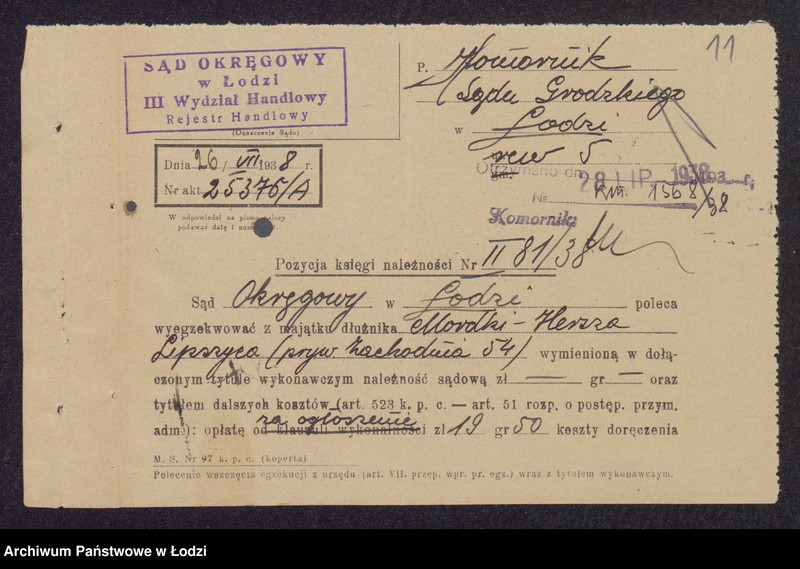 11
SĄD OKRĘGOWY
w Łodzi
III Wydział Handlowy
Rejestr Handlowy
(Oznaczenie Sądu)
P. Komornik
Sądu Grodzkiego
w Łodzi
rew 5
Dnia 26/VII 1938 r.
Nr akt 25376/A
W odpowiedzi na pismo należy
podawać datę i numer
Otrzymano dn. 28 LIP. 1938 193 r.
№ Km. 1568/38
Komornik:
Pozycja księgi należności Nr II 81/38
Sąd Okręgowy w Łodzi poleca
wyegzekwować z majątku dłużnika Mordki-Hersza
Lipszyca (pryw. Zachodnia 54) wymienioną w dołą-
czonym tytule wykonawczym należność sądową zł — gr — oraz
tytułem dalszych kosztów (art. 523 k. p. c. — art. 51 rozp. o postęp. przym.
za ogłoszenie
adm.): opłatę od klauzuli wykonalności zł 19 gr 50 koszty doręczenia
M. S. Nr 97 k. p. c. (koperta)
Polecenie wszczęcia egzekucji z urzędu (art. VII. przep. wpr. pr. egz.) wraz z tytułem wykonawczym.
Archiwum Państwowe w Łodzi